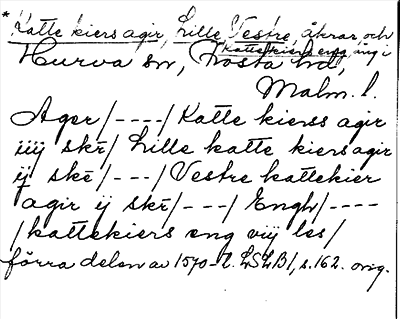 * Katte kiers agir, Lille, Vestre, åkrar, och
kattekiers eng, äng i
Hurva sn, Frosta hd,
Malm. l.
Ager/----/Katte kierss agir
iiij skē/Lille katte kiers agir
ij skē/---/Vestre kattekier
agir ij skē/---/Engh/----
/kattekiers eng viij les/
förra delen av 1570-t. LSLB1, s. 162. orig.